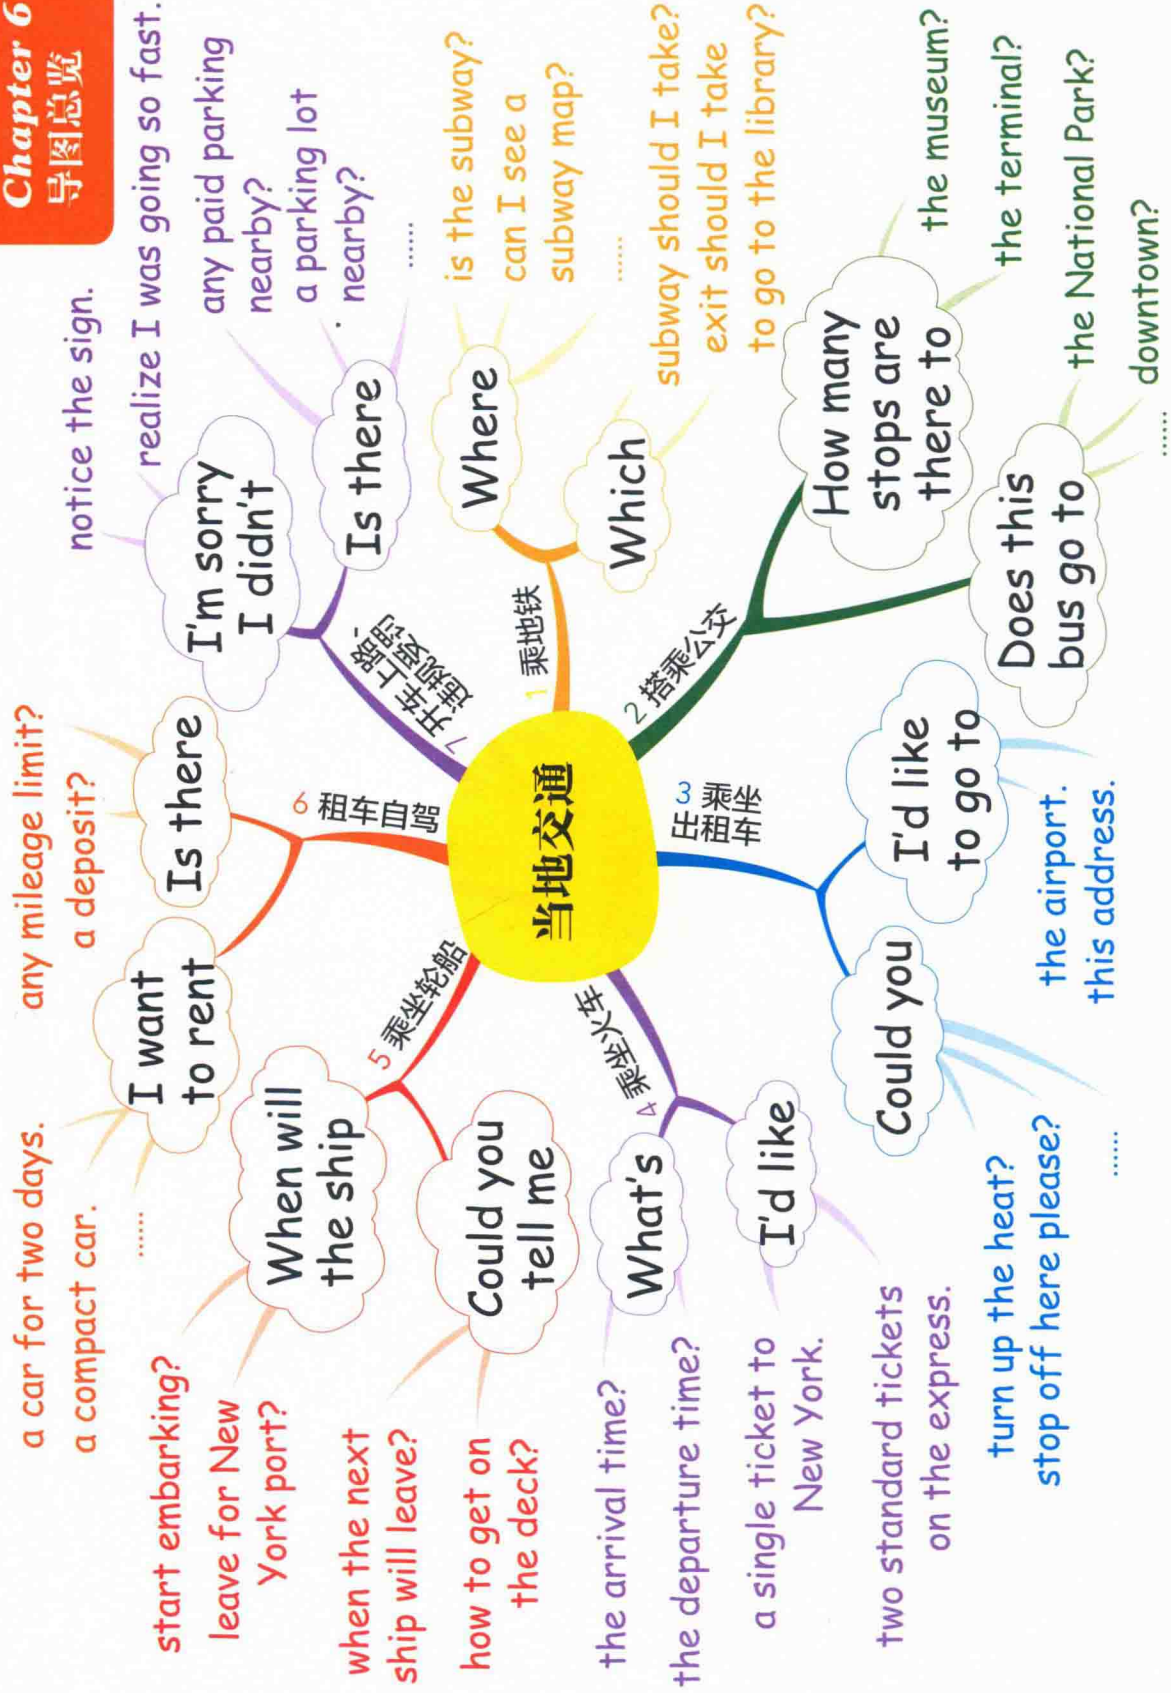 Chapter 6
导图总览
当地交通
1 乘地铁
Where
is the subway?
can I see a
subway map?
......
Which
subway should I take?
exit should I take
to go to the library?
2 搭乘公交
How many
stops are
there to
the museum?
the terminal?
Does this
bus go to
the National Park?
downtown?
......
3 乘坐
出租车
I'd like
to go to
the airport.
this address.
Could you
turn up the heat?
stop off here please?
......
4 乘坐火车
What's
the arrival time?
the departure time?
I'd like
a single ticket to
New York.
two standard tickets
on the express.
5 乘坐轮船
When will
the ship
start embarking?
leave for New
York port?
Could you
tell me
when the next
ship will leave?
how to get on
the deck?
6 租车自驾
I want
to rent
a car for two days.
a compact car.
......
Is there
any mileage limit?
a deposit?
7 开车上路、
违规受罚
I'm sorry
I didn't
notice the sign.
realize I was going so fast.
Is there
any paid parking
nearby?
a parking lot
nearby?
......